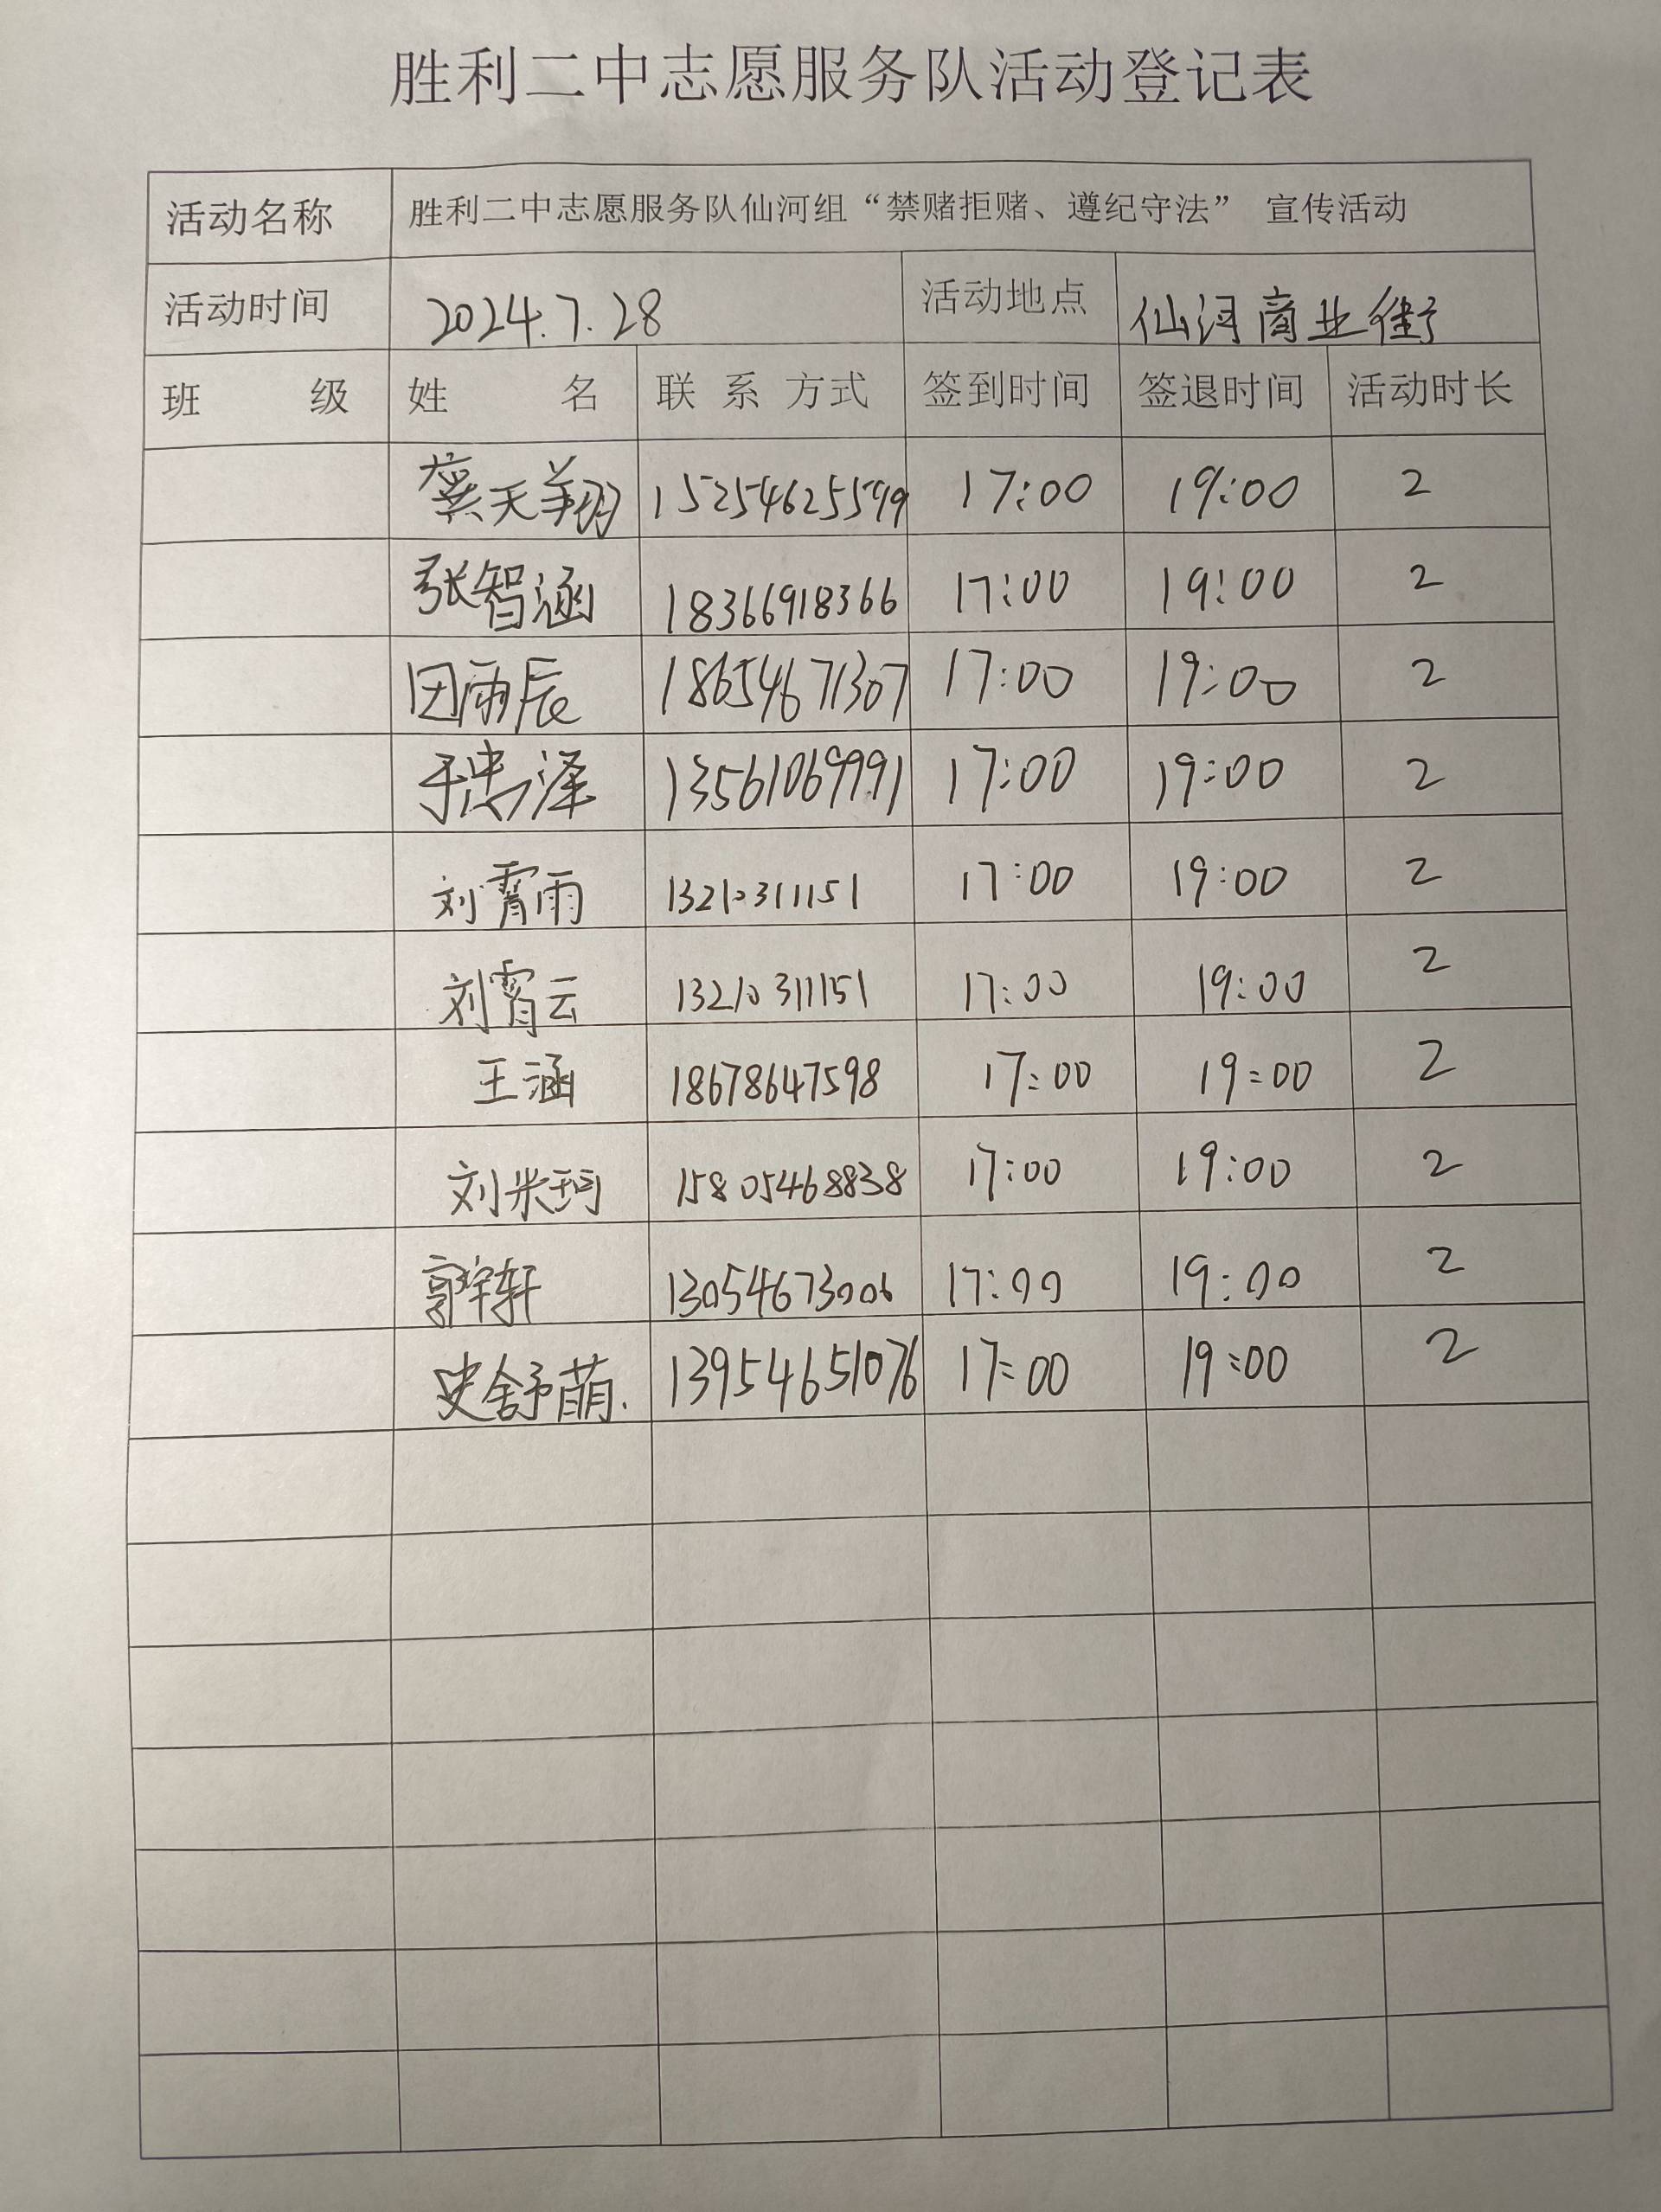 胜利二中志愿服务队活动登记表
活动名称 胜利二中志愿服务队仙河组“禁赌拒赌、遵纪守法” 宣传活动
活动时间 2024.7.28 活动地点 仙河商业街
班 级 姓 名 联 系 方式 签到时间 签退时间 活动时长
龚天翔 15254625599 17:00 19:00 2
张智涵 18366918366 17:00 19:00 2
田雨辰 18654671307 17:00 19:00 2
泽 13561069991 17:00 19:00 2
刘霄雨 13210311151 17:00 19:00 2
刘霄云 13210311151 17:00 19:00 2
王涵 18678647598 17:00 19:00 2
刘米珂 15805468838 17:00 19:00 2
郭梓轩 13054673006 17:00 19:00 2
史舒萌. 13954651076 17:00 19:00 2